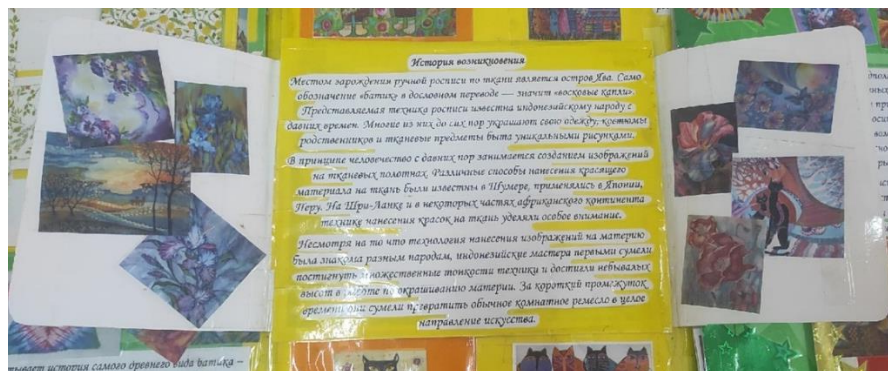 История возникновения
Местом зарождения ручной росписи по ткани является остров Ява. Само
обозначение «батик» в дословном переводе — значит «восковые капли».
Представляемая техника росписи известна индонезийскому народу с
давних времен. Многие из них до сих пор украшают свою одежду, костюмы
родственников и тканевые предметы быта уникальными рисунками.
В принципе человечество с давних пор занимается созданием изображений
на тканевых полотнах. Различные способы нанесения красящего
материала на ткань были известны в Шумере, применялись в Японии,
Перу. На Шри-Ланке и в некоторых частях африканского континента
технике нанесения красок на ткань уделяли особое внимание.
Несмотря на то что технология нанесения изображений на материю
была знакома разным народам, индонезийские мастера первыми сумели
постигнуть множественные тонкости техники и достигли небывалых
высот в работе по окрашиванию материи. За короткий промежуток
времени они сумели превратить обычное комнатное ремесло в целое
направление искусства.
тывает история самого древнего вида батика –